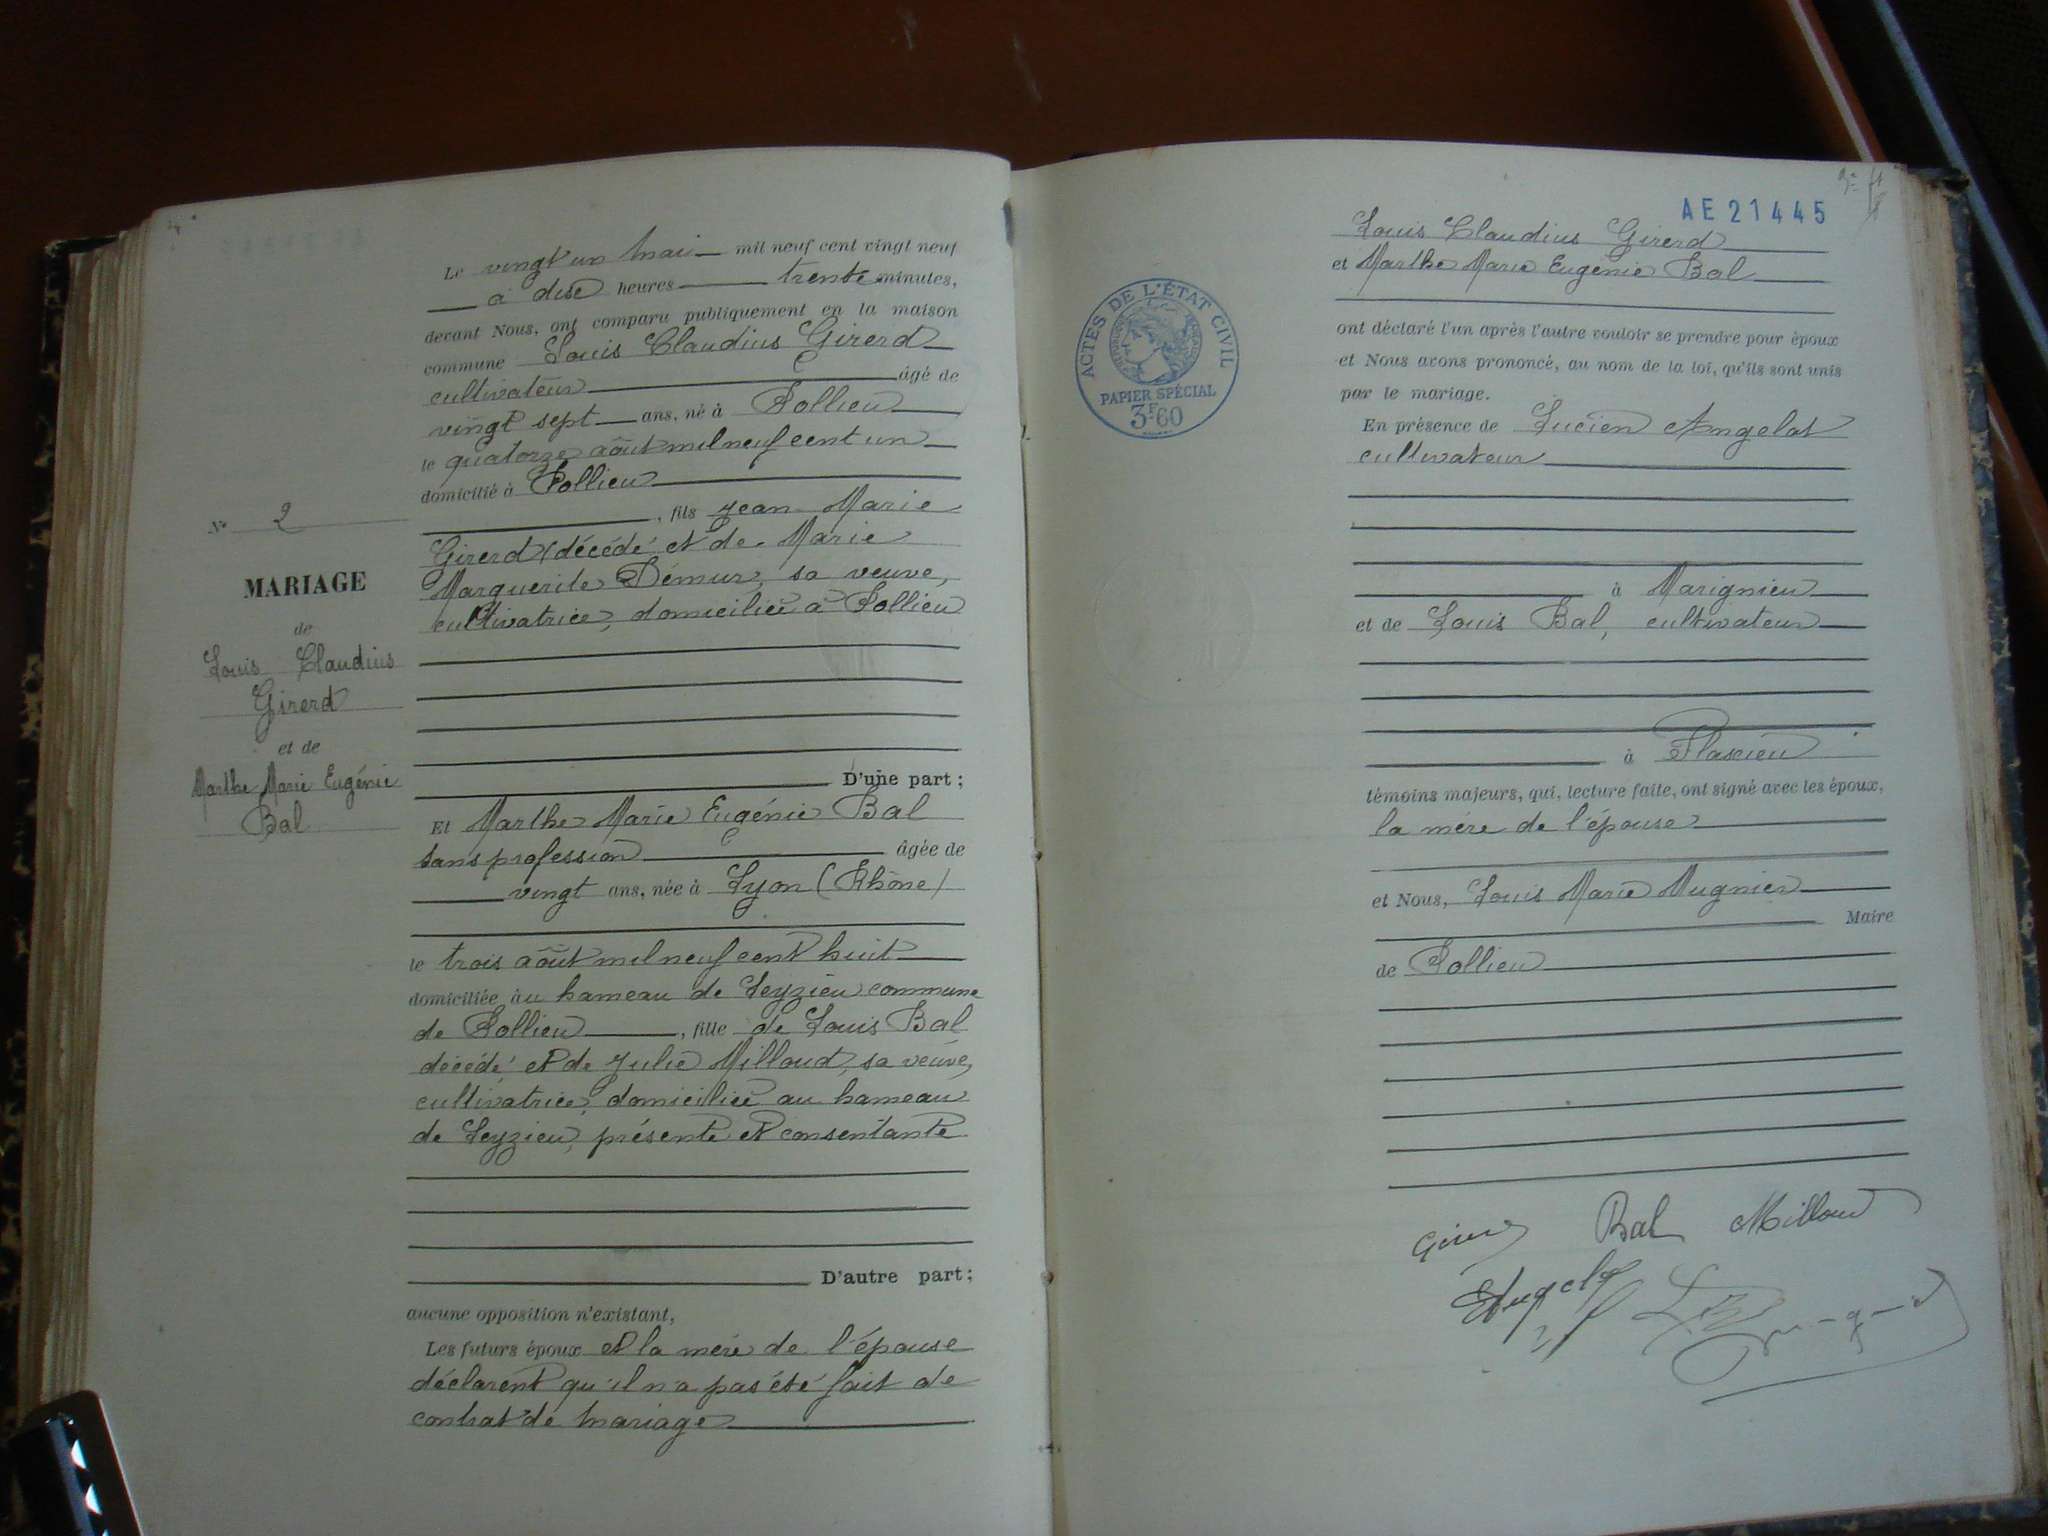 Le vingt un Mai mil neuf cent vingt neuf
à dix heures trente minutes,
devant Nous, ont comparu publiquement en la maison
commune Louis Claudius Girerd
cultivateur âgé de
vingt sept ans, né à Pollieu
le quatorze août mil neuf cent un
domicilié à Pollieu
, fils Jean Marie
Girerd décédé et de Marie
Marguerite Démur, sa veuve,
cultivatrice, domiciliée à Pollieu
D'une part ;
Et Marthe Marie Eugénie Bal
sans profession âgée de
vingt ans, née à Lyon (Rhône)
le trois août mil neuf cent huit
domiciliée au hameau de Leyzieu commune
de Pollieu, fille de Louis Bal
décédé et de Julie Milloud, sa veuve,
cultivatrice, domiciliée au hameau
de Leyzieu, présente et consentante
D'autre part ;
aucune opposition n'existant,
Les futurs époux et la mère de l'épouse
déclarent qu'il n'a pas été fait de
contrat de mariage
N° 2
MARIAGE
de
Louis Claudius
Girerd
et de
Marthe Marie Eugénie
Bal
AE 21445
ACTES DE L'ÉTAT CIVIL
PAPIER SPÉCIAL
3F.60
Louis Claudius Girerd
et Marthe Marie Eugénie Bal
ont déclaré l'un après l'autre vouloir se prendre pour époux
et Nous avons prononcé, au nom de la loi, qu'ils sont unis
par le mariage.
En présence de Lucien Angelot
cultivateur
à Marignieu
et de Louis Bal, cultivateur
à Flaxieu
témoins majeurs, qui, lecture faite, ont signé avec les époux,
la mère de l'épouse
et Nous, Louis Marie Mugnier
Maire
de Pollieu
Girerd Bal Milloud